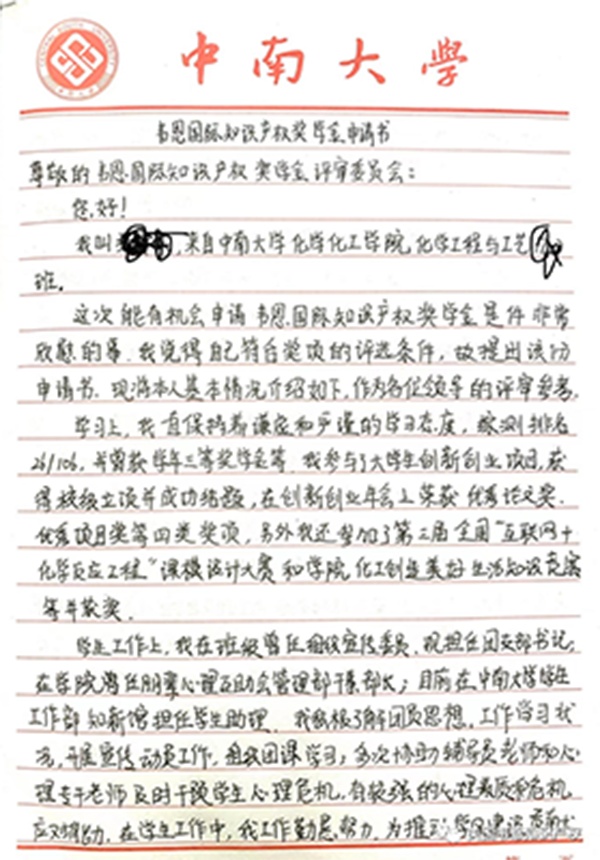 中南大学
韦恩国际知识产权奖学金申请书
尊敬的韦恩国际知识产权奖学金评审委员会：
您好！
我叫，来自中南大学化学化工学院，化学工程与工艺
班。
这次能有机会申请韦恩国际知识产权奖学金是件非常
欣慰的事，我觉得自己符合奖项的评选条件，故提出该份
申请书。现将本人基本情况介绍如下，作为各位领导的评审参考。
学习上，我一直保持着谦虚和严谨的学习态度，综测排名
26/106，并曾获学年三等奖学金等。我参与了大学生创新创业项目，获
得校级立项并成功结题，在创新创业年会上荣获优秀论文奖、
优秀项目奖等四类奖项，另外我还参加了第三届全国“互联网+
化学反应工程”课模设计大赛和学院化工创造美好生活知识竞赛
等并获奖。
学生工作上，我在班级曾任组织宣传委员，现担任团支部书记；
在学院曾任朋辈心理互助会管理部干事、部长；目前在中南大学学生
工作部知新馆担任学生助理。我积极了解团员思想、工作学习状
况，开展宣传动员工作，组织团课学习；多次协助辅导员老师和心
理专干老师及时干预学生心理危机，有较强的心理素质和危机
应对能力。在学生工作中，我工作勤恳努力，为推动学风建设